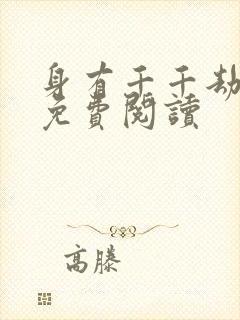 身有千千劫
免費閱讀
高滕